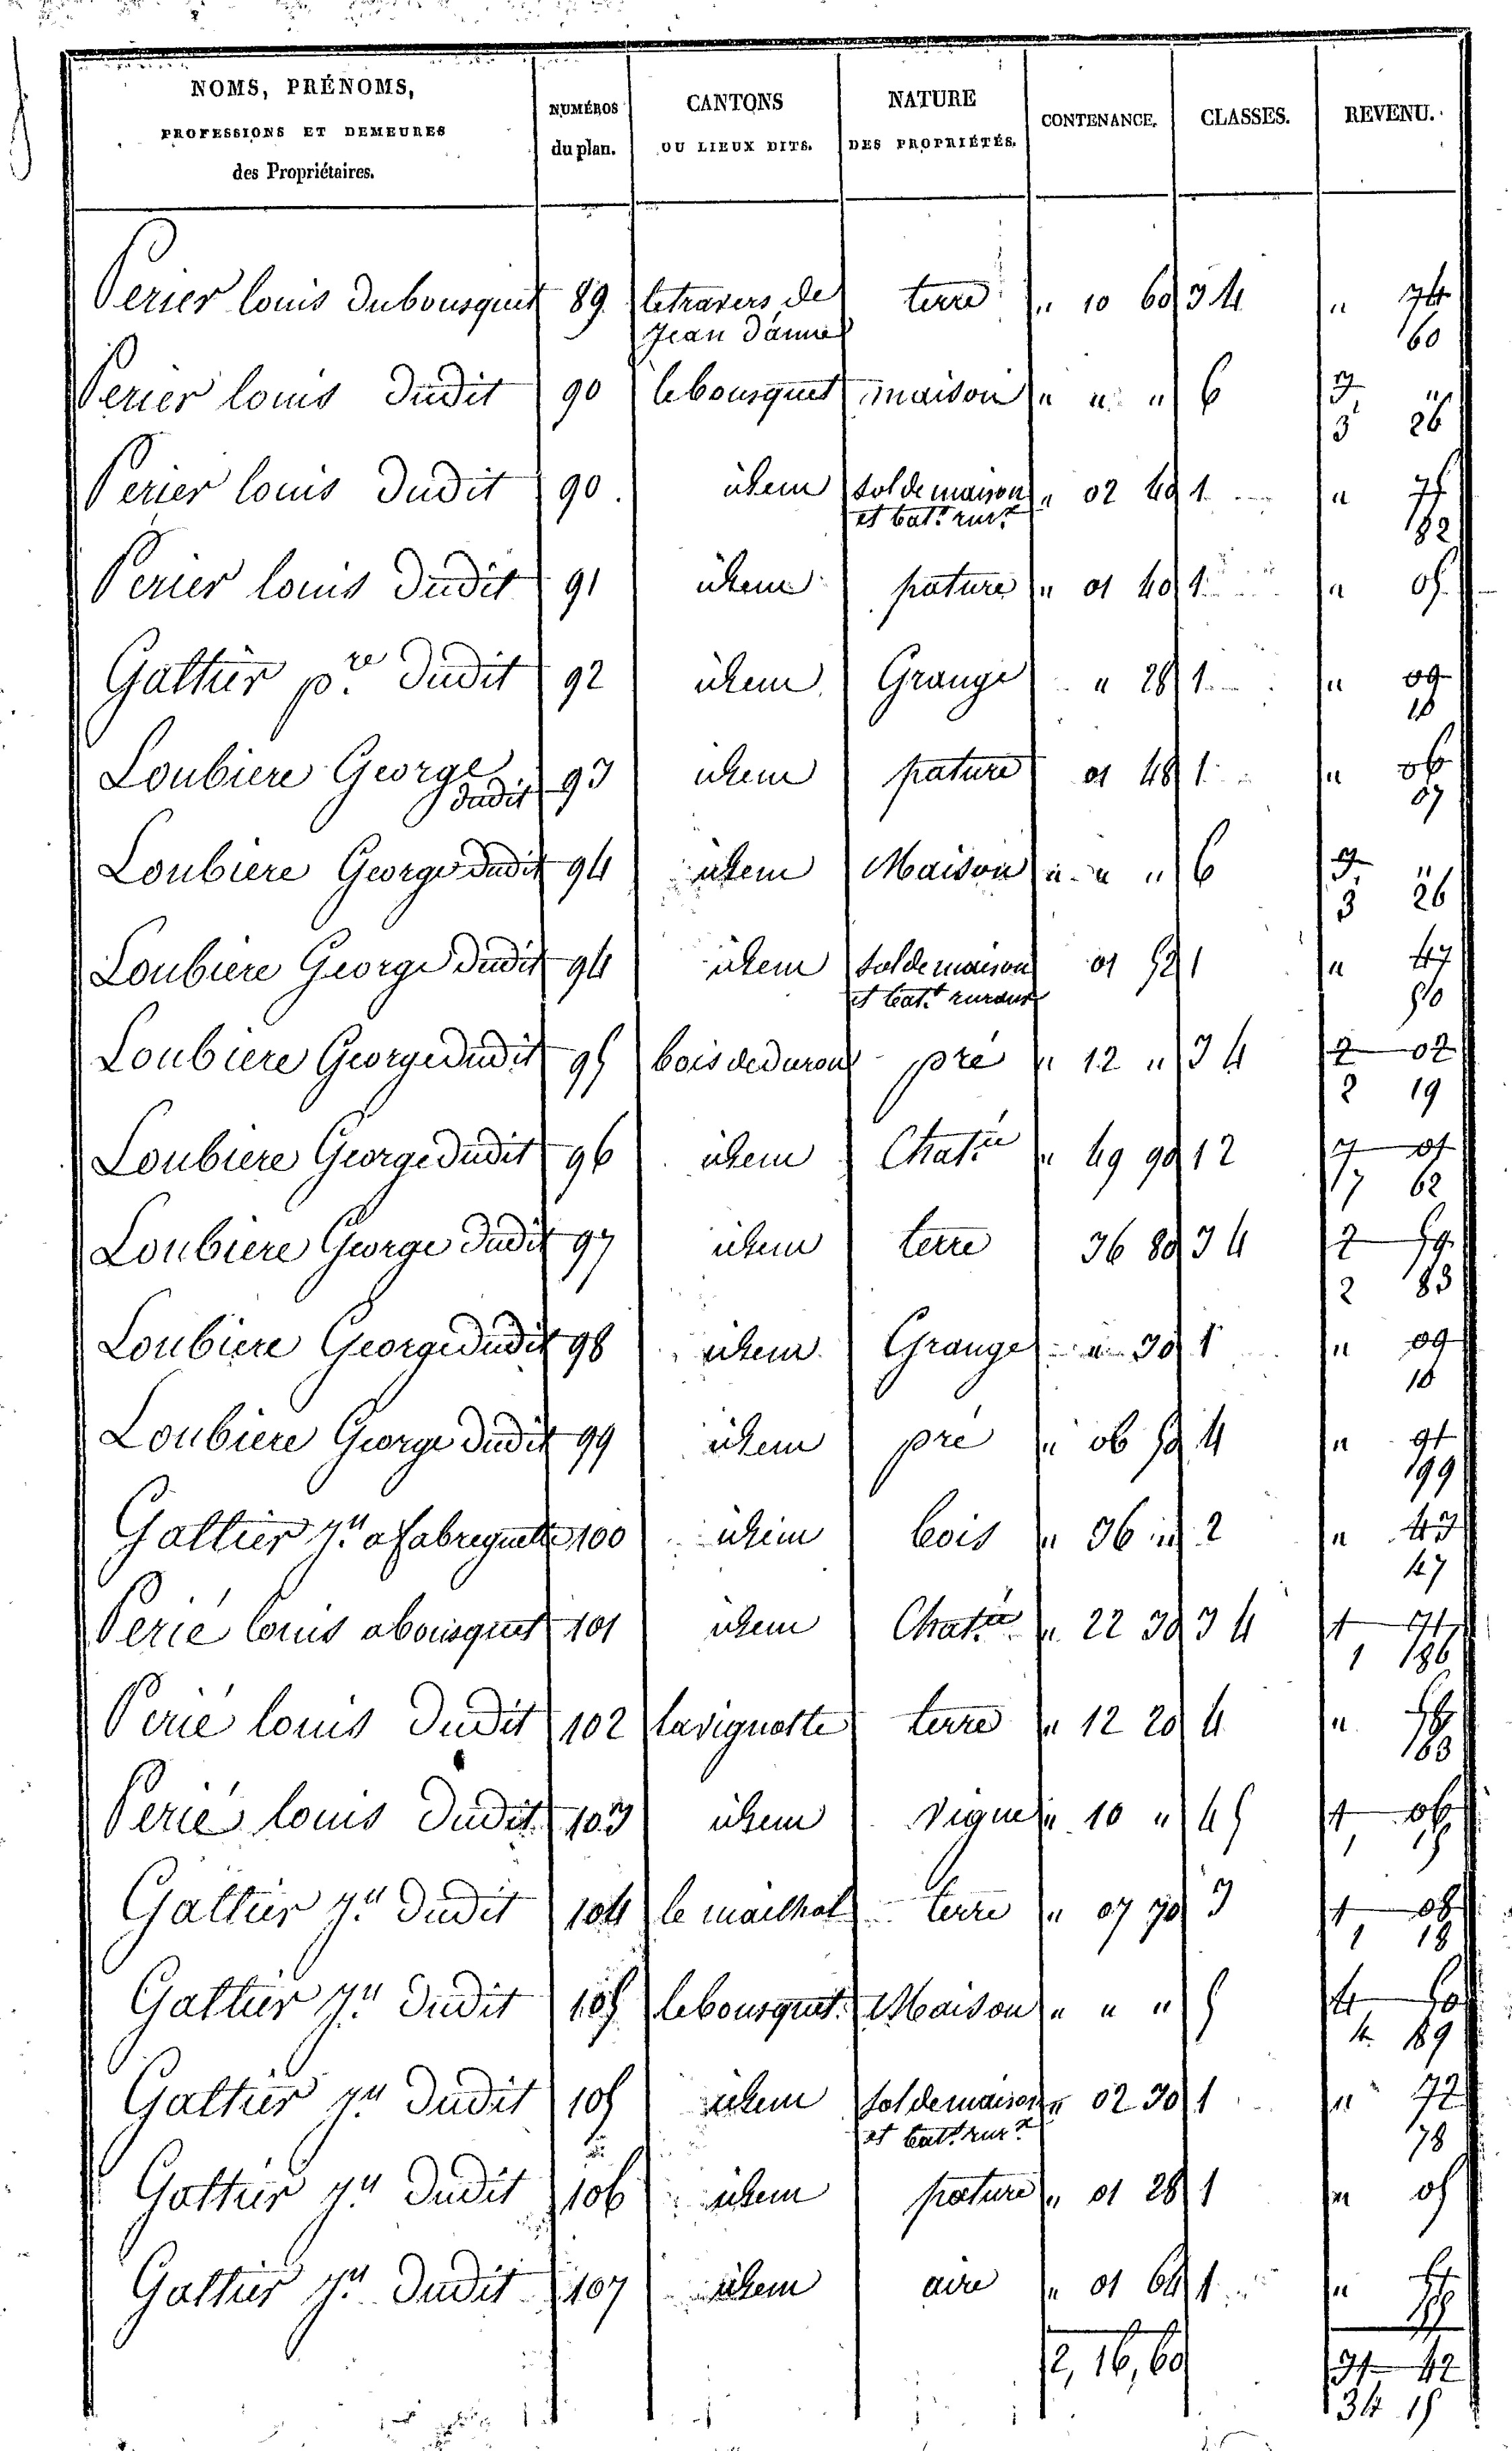 NOMS, PRÉNOMS, PROFESSIONS ET DEMEURES des Propriétaires. | NUMÉROS du plan. | CANTONS OU LIEUX DITS. | NATURE DES PROPRIÉTÉS. | CONTENANCE. | CLASSES. | REVENU.
Perier louis dubousquet 89 letravers de terre " 10 60 3 4 " 74
Jean d'anne 60
Perier louis dudit 90 lebousquet maison " " " 6 3 "
3 26
Perier louis dudit 90. idem sol de maison " 02 40 1 " 75
et bat.t rur.x 82
Perier louis dudit 91 idem pature " 01 40 1 " 05
Galtier p.re dudit 92 idem Grange " 28 1 " 09
10
Loubiere George 93 idem pature 01 48 1 " 06
dudit 07
Loubiere George dudit 94 idem Maison " " " 6 3 "
3 26
Loubiere George dudit 94 idem sol de maison 01 52 1 " 47
et bat.t ruraux 50
Loubiere George dudit 95 bois deduron pré " 12 " 3 4 2 02
2 19
Loubiere George dudit 96 idem Chat.ie " 49 90 1 2 7 01
7 62
Loubiere George dudit 97 idem terre 36 80 3 4 2 59
2 83
Loubiere George dudit 98 idem Grange " 30 1 " 09
10
Loubiere George dudit 99 idem pré " 06 50 4 " 91
99
Galtier a fabreguette 100 idem bois " 36 " 2 " 43
47
Perié louis abousquet 101 idem Chat.ie " 22 30 3 4 1 71
1 86
Perié louis dudit 102 lavignotte terre " 12 20 4 " 58
63
Perié louis dudit 103 idem Vigne " 10 " 4 5 1 06
1 15
Galtier dudit 104 le mailhol terre " 07 70 3 1 08
1 18
Galtier dudit 105 lebousquet Maison " " " 5 4 50
4 89
Galtier dudit 105 idem sol de maison " 02 30 1 " 72
et bat.t rur.x 78
Galtier dudit 106 idem pature " 01 28 1 " 05
Galtier dudit 107 idem aire " 01 64 1 " 51
55
2,16,60 31 42
34 15